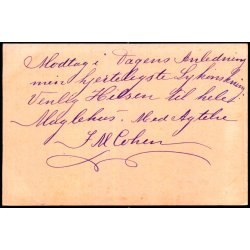 Modtag i Dagens Anledning
min hjerteligste Lykønskning
Venlig Hilsen til hele
Maglehus. Med Agtelse
J M Cohen